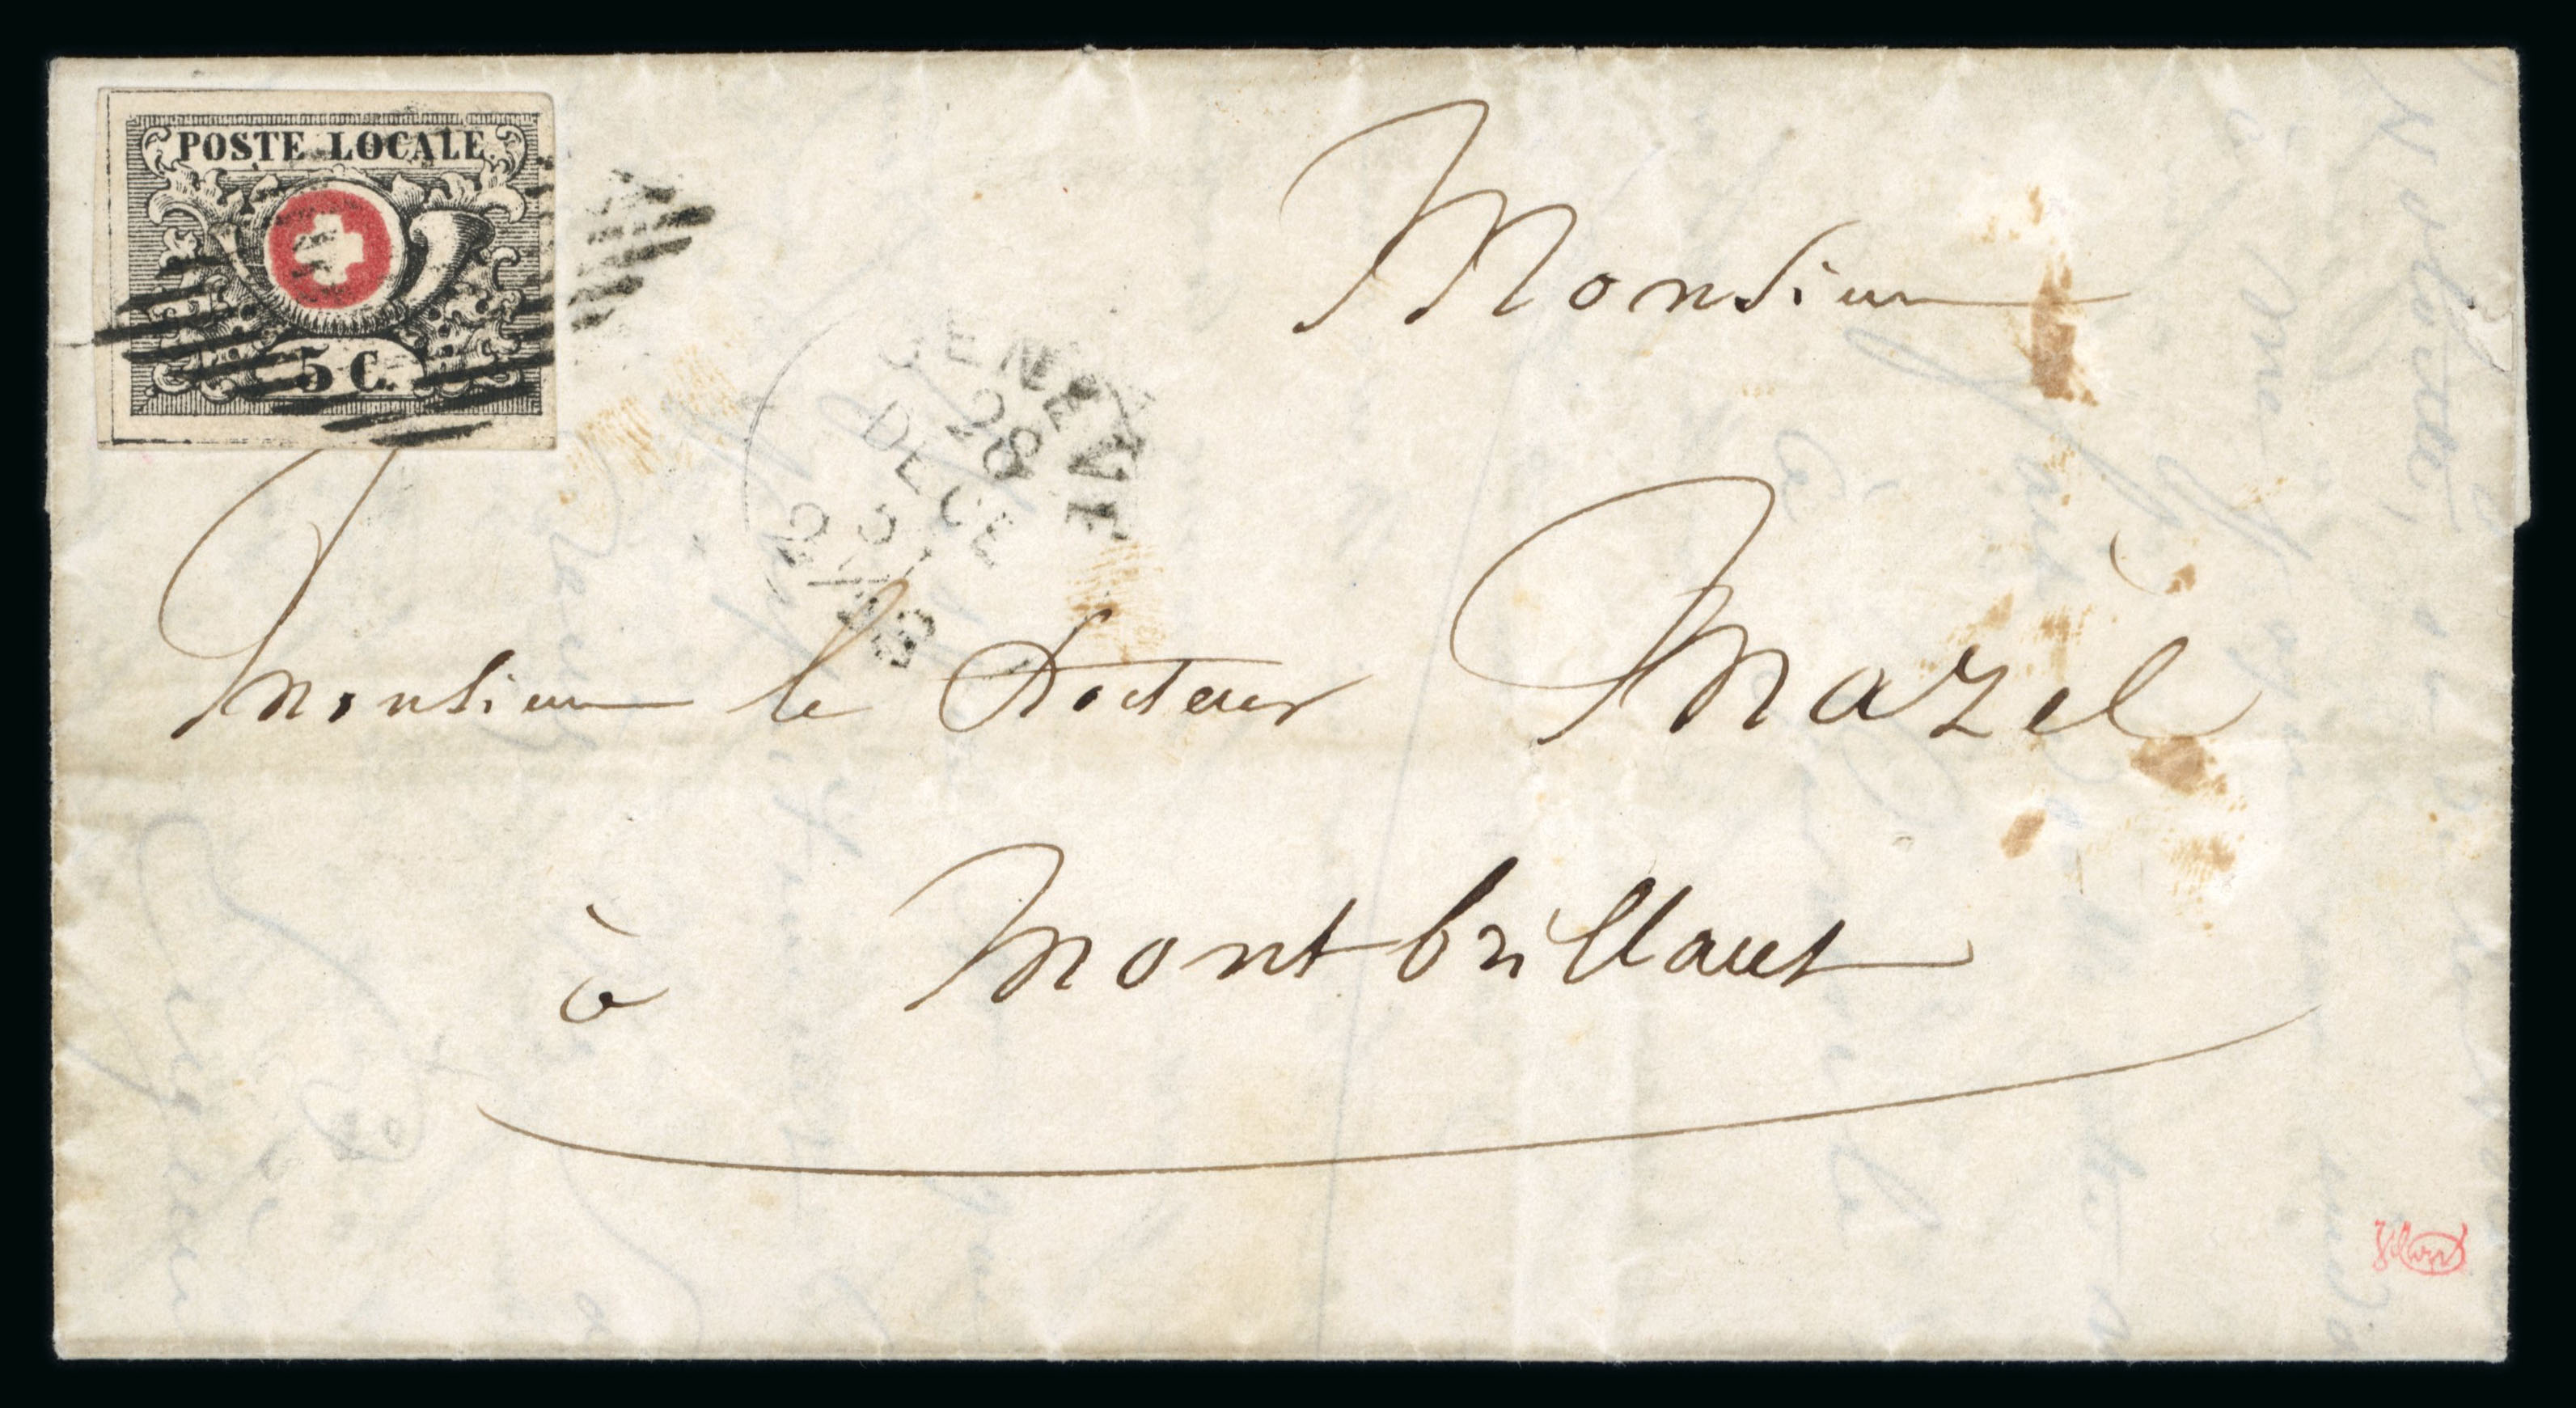 POSTE LOCALE
5 C.
GENEVE
28
DECE
51
Monsieur
Monsieur le Docteur Mazel
à Montbrillant